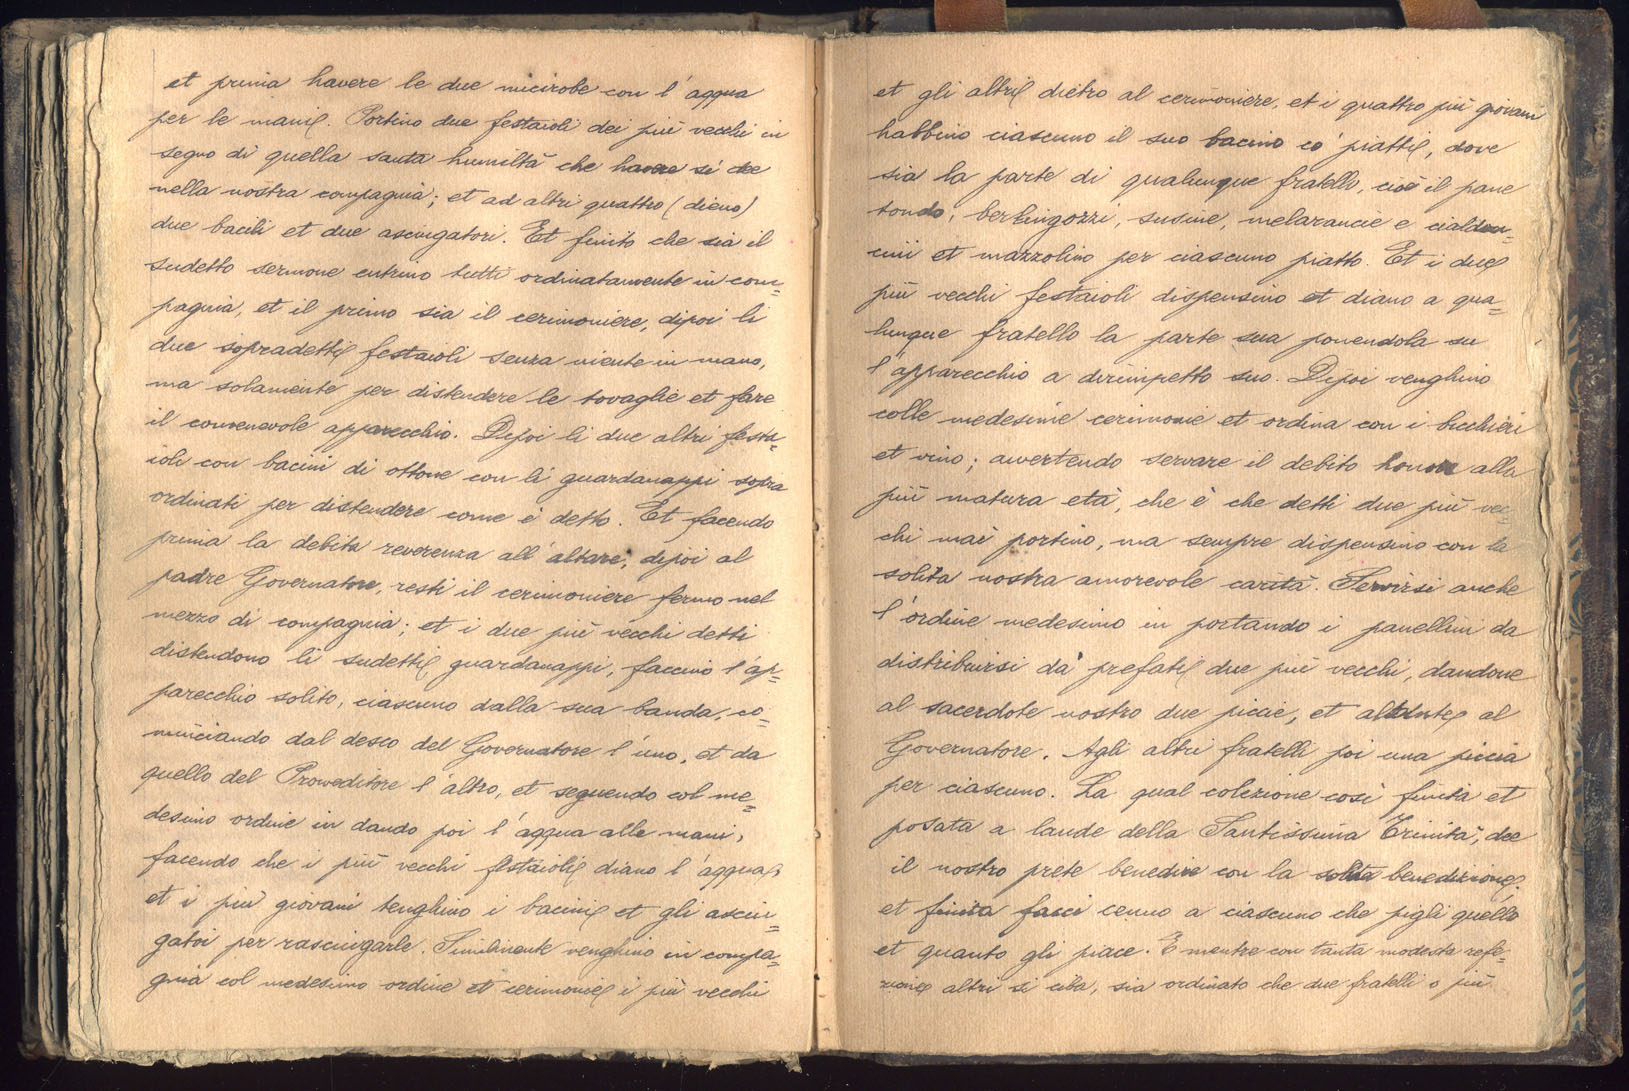 et prima havere le due micirobe con l'acqua
per le mani. Portino due festaioli dei più vecchi in
segno di quella santa humiltà che havere si dee
nella nostra compagnia; et ad altri quattro (dieno)
due bacili et due asciugatori. Et finito che sia il
sudetto sermone entrino tutti ordinatamente in com=
pagnia, et il primo sia il cerimoniere, dipoi li
due sopradetti festaioli senza niente in mano,
ma solamente per distendere le tovaglie et fare
il convenevole apparecchio. Depoi li due altri festa=
ioli con bacini di ottone con li guardanappi sopra
ordinati per distendere come è detto. Et facendo
prima la debita reverenza all'altare, depoi al
padre Governatore, resti il cerimoniere fermo nel
mezzo di compagnia; et i due più vecchi detti
distendono li sudetti guardanappi, faccino l'ap=
parecchio solito, ciascuno dalla sua banda, co=
minciando dal desco del Governatore l'uno, et da
quello del Proveditore l'altro, et seguendo col me=
desimo ordine in dando poi l'acqua alle mani,
facendo che i più vecchi festaioli diano l'acqua,
et i più giovani tenghino i bacini et gli asciu=
gatoi per rasciugarle. Similmente venghino in compa=
gnia col medesimo ordine et cerimonie i più vecchi
et gli altri dietro al cerimoniere, et i quattro più giovani
habbino ciascuno il suo bacino co' piatti, dove
sia la parte di qualunque fratello, cioè il pane
tondo, berlingozzi, susine, melarancie e cialdon=
cini et mazzolino per ciascuno piatto. Et i due
più vecchi festaioli dispensino et diano a qua=
lunque fratello la parte sua ponendola su
l'apparecchio a dirimpetto suo. Depoi venghino
colle medesime cerimonie et ordina con i bicchieri
et vino; avvertendo servare il debito honore alla
più matura età, che è che detti due più vec=
chi mai portino, ma sempre dispensino con la
solita nostra amorevole carità. Servirsi anche
l'ordine medesimo in portando i panellini da
distribuirsi da' prefati due più vecchi, dandone
al sacerdote nostro due piccie, et altrinte al
Governatore. Agli altri fratelli poi una piccia
per ciascuno. La qual colezione così finita et
posata a laude della Santissima Trinità, dee
il nostro prete benedire con la solita benedizione.
et finita facci cenno a ciascuno che pigli quello
et quanto gli piace. E mentre con tanta modesta refe=
zione altri si ciba, sia ordinato che due fratelli o più